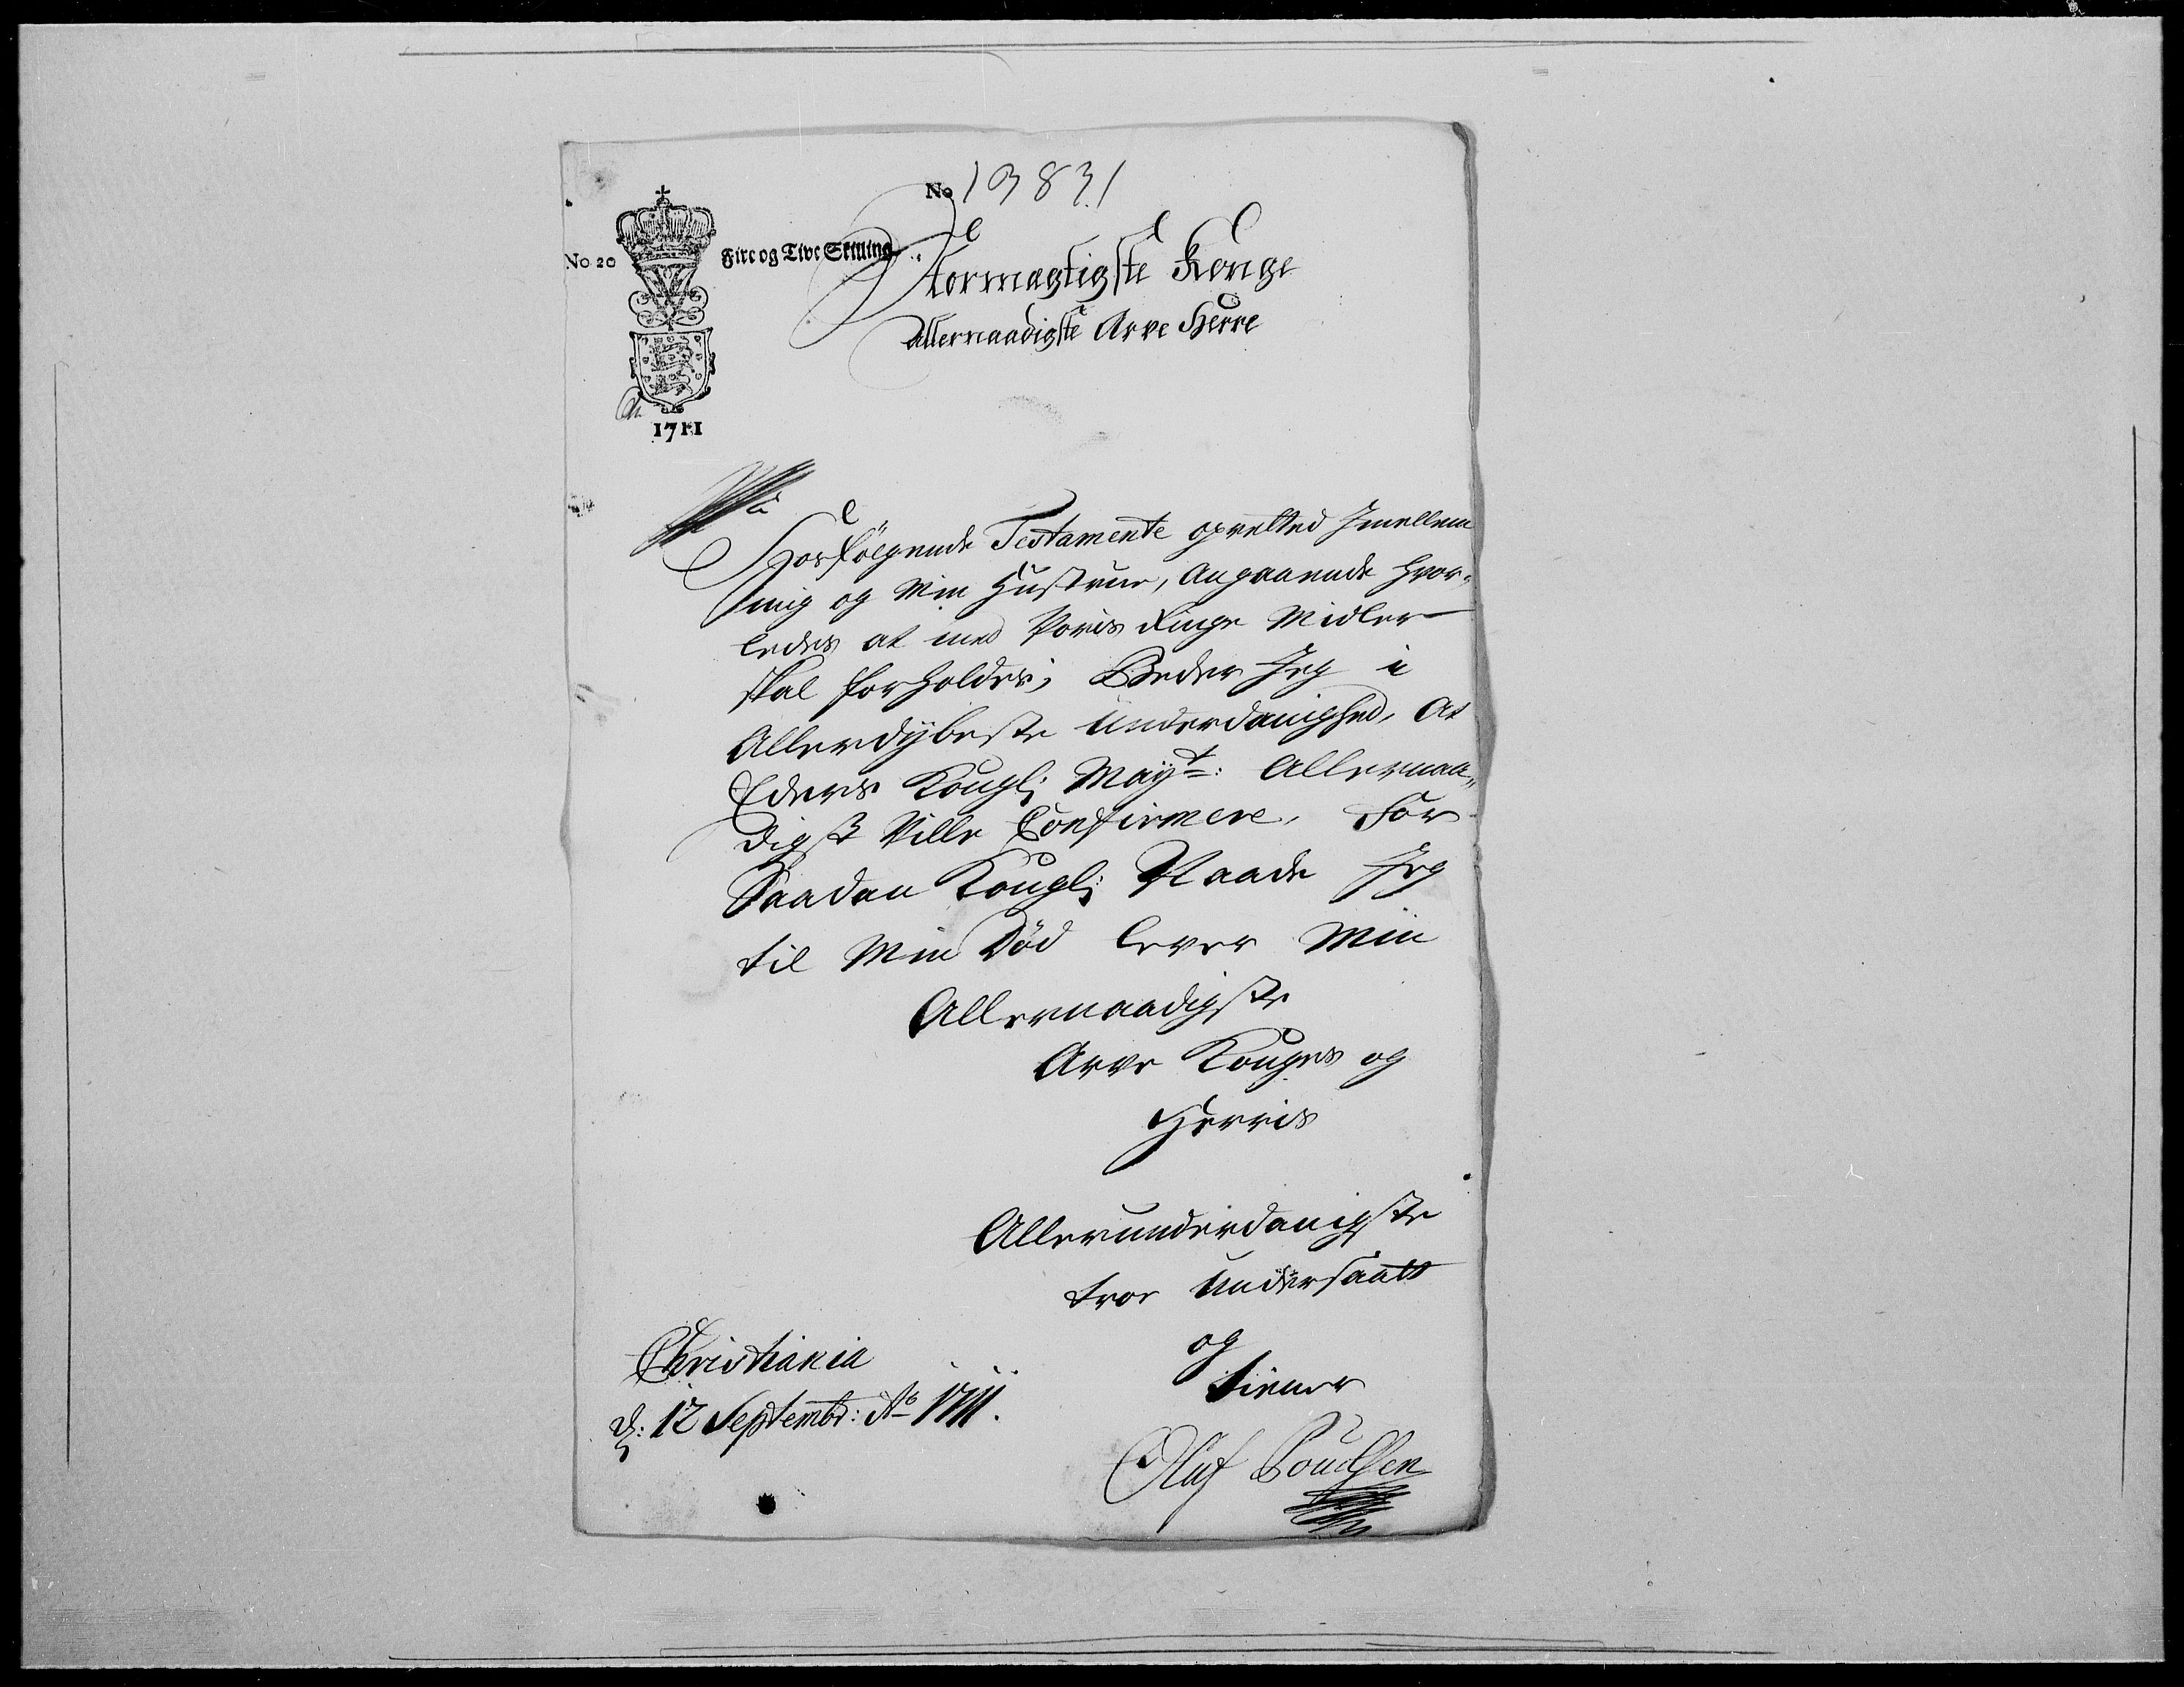 No 19831
No 20
Fire og Tive Skilling
Stormægtigste Konge
Allernaadigste Arve Herre
1711
Hosfölgende Testamente opretted Jmellem
mig og Min Hustrue, Angaaende hvor„
ledes at med Voris Ringe Midler
skal forholdes; Beder Jeg i
Allerdybeste Underdanighed, At
Eders Kongl: Mayt: Allernaa„
digst Ville Confirmere, For
Saadan Kongl: Naade Jeg
til Min Död lever Min
Allernaadigste
Arve Konges og
Herris
Allerunderdanigste
troe Undersaatt
og
tiener
Christiania
d: 12 Septembr: Ao 1711.
Oluf Poudlsen